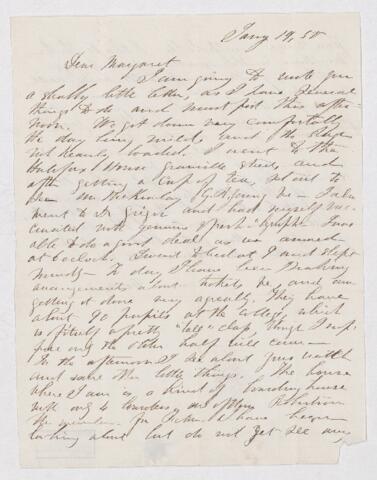 Jany 19, 50
Dear Margaret
I am going to write you
a shabby little letter as I have several
things to do and must post this after-
noon. We got down very comfortably
the day being mild, and the stage
not heavily loaded. I went to the
Halifax House Granville Street, and
after getting a cup of tea, set out to
see Mr McKinlay, G. R. Young &c - I also
went to Dr Grigor and had myself vac-
cinated with genuine fresh lymph. I was
able to do a good deal as we arrived
at o'clock. I went to bed at 9 and slept
To day I have been making
arrangements about tickets &c, and am
getting it done very agreeably. They have
about 90 pupils at the college, which
is a pretty class, tho' I sup-
pose only the other half will come -
In the afternoon I see about your watch
and some other little things. The house
where I am is a kind of boarding house
with only 4 boarders, one of them Robertson
the minister. For I have been
looking about but do not yet see any